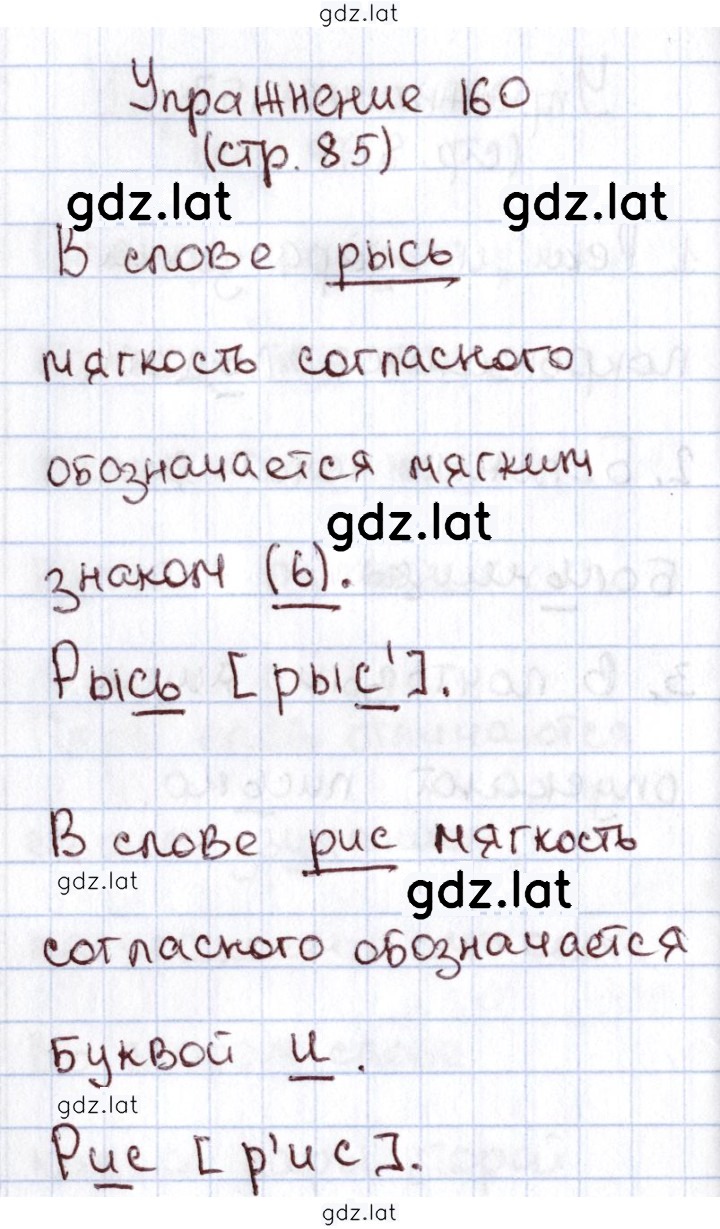 gdz.lat
Упражнение 160
(стр. 85)
gdz.lat gdz.lat
В слове рысь
мягкость согласного
обозначается мягким
gdz.lat
знаком (ь).
Рысь [рыс'].
В слове рис мягкость
gdz.lat gdz.lat
согласного обозначается
буквой и.
gdz.lat
Рис [р'ис].
gdz.lat